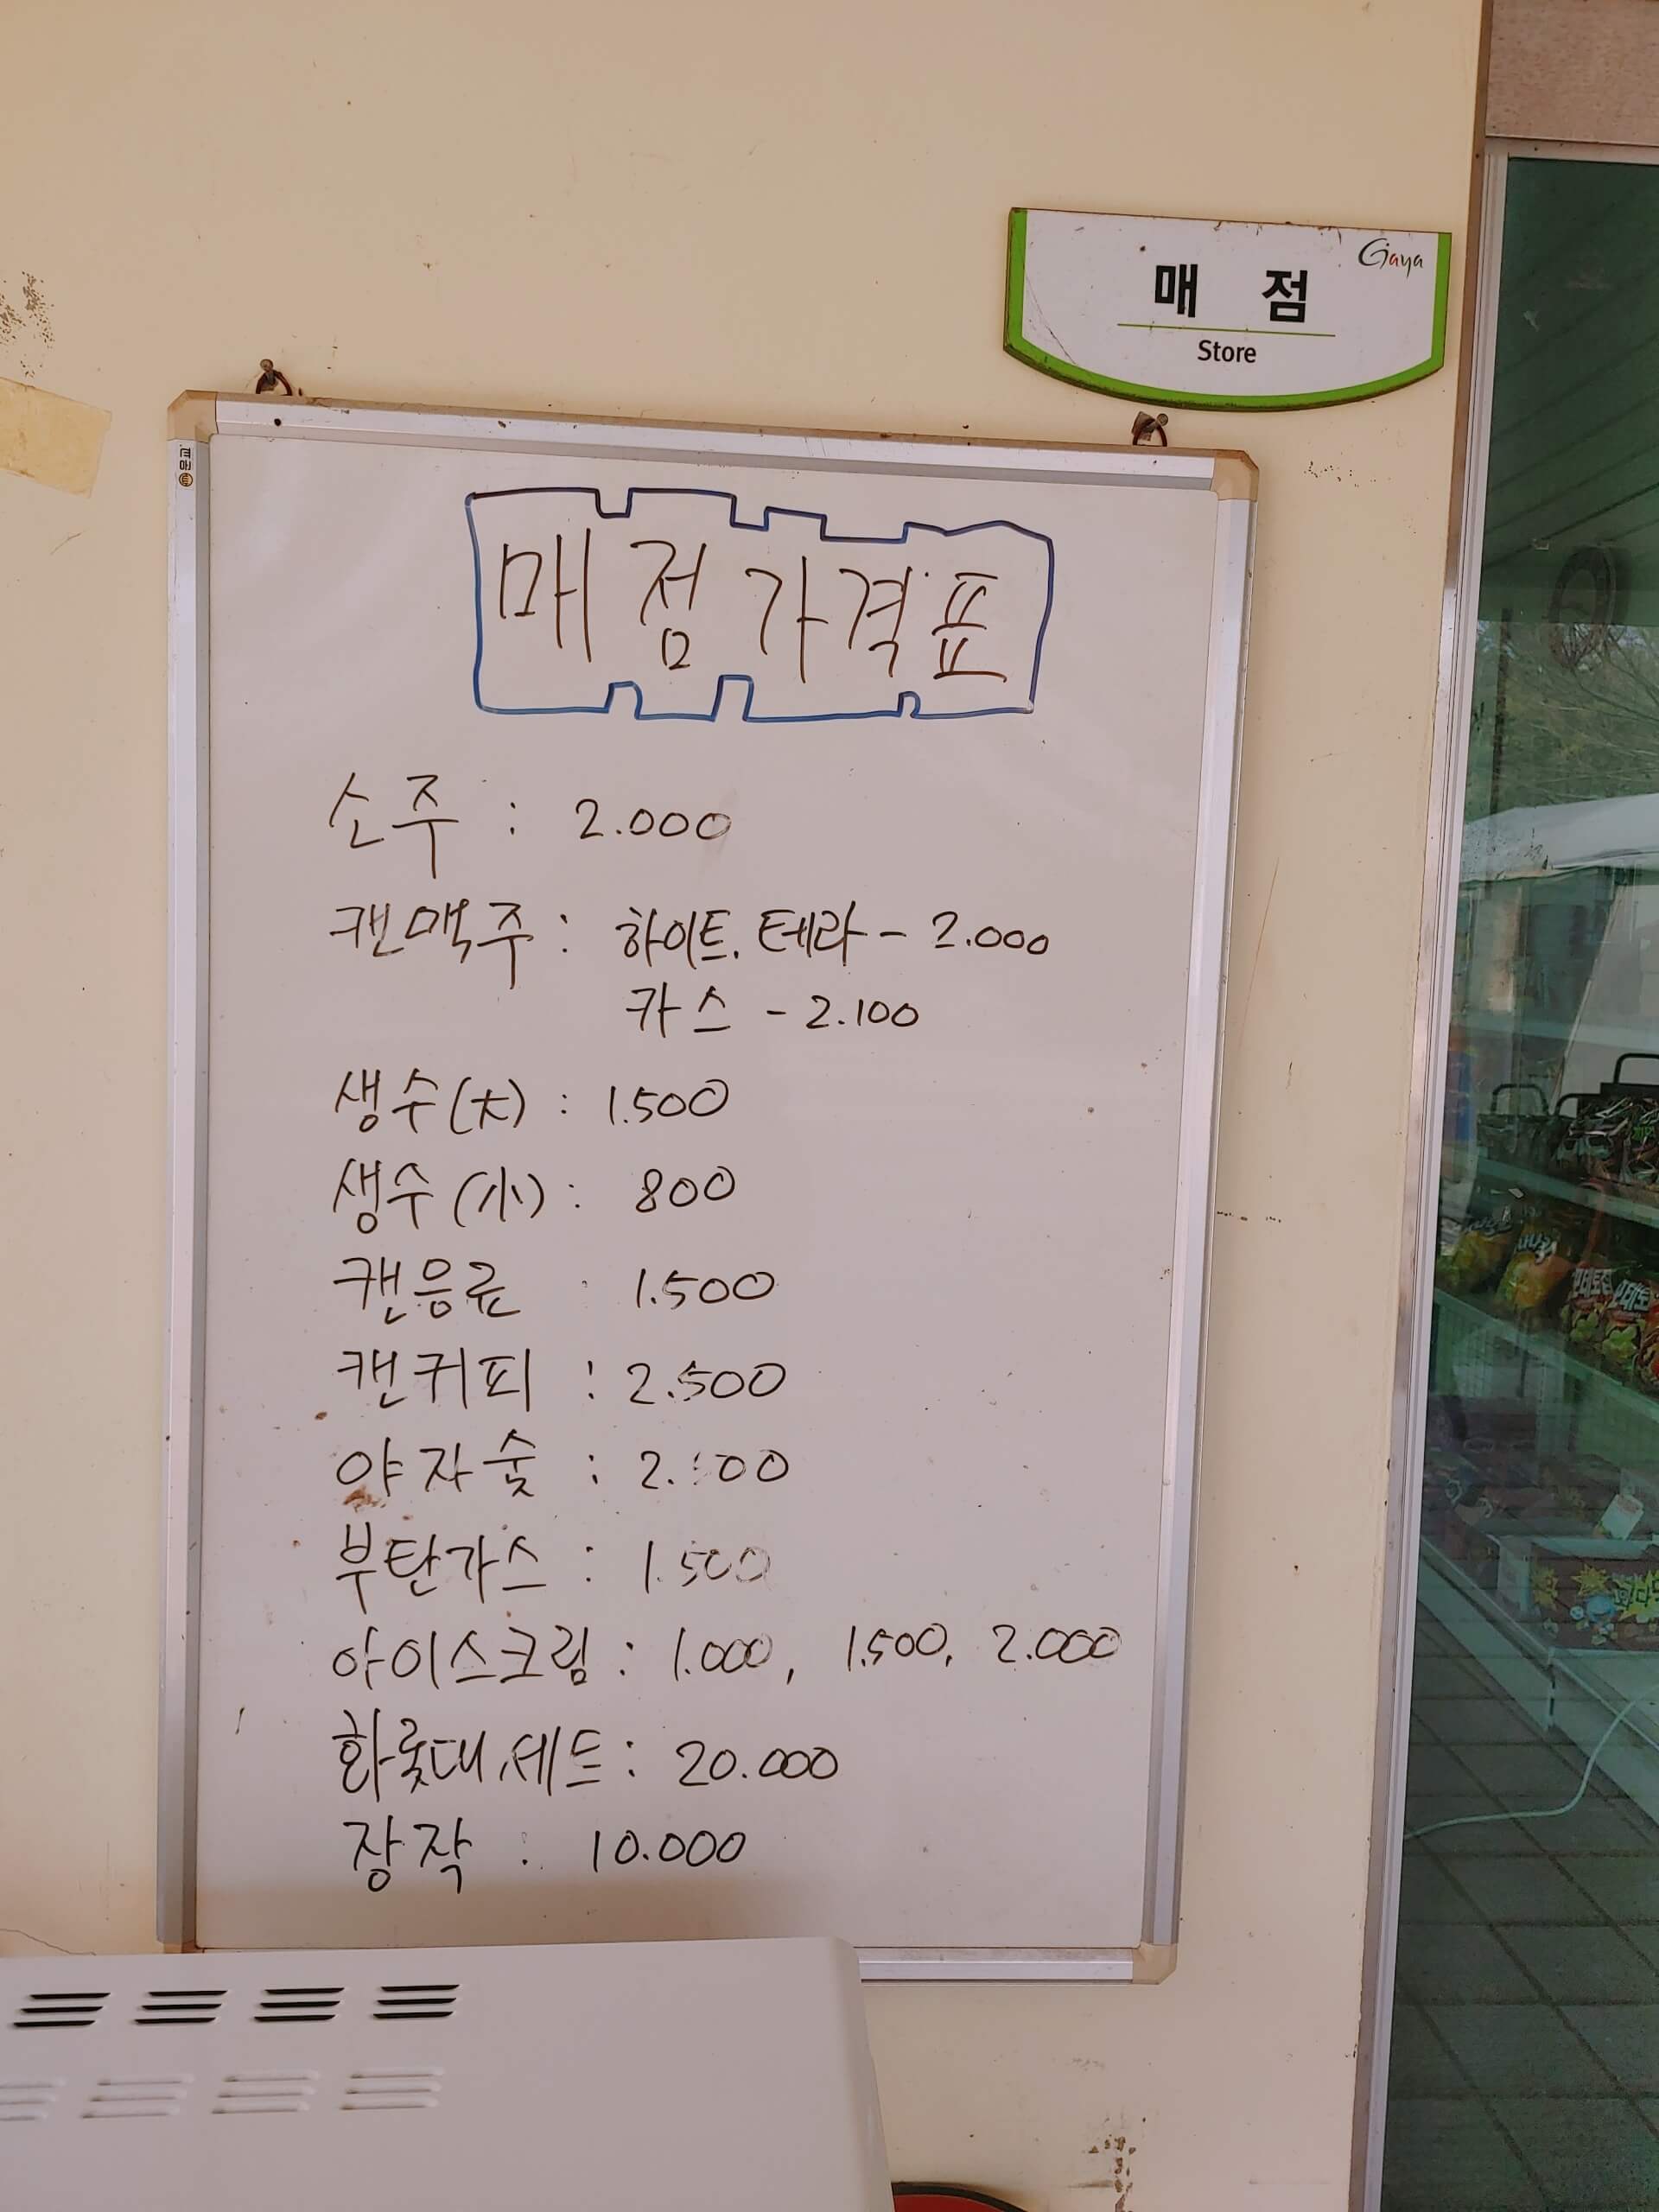 Gaya
매 점
Store
매점가격표
소주 : 2.000
캔맥주 : 하이트. 테라 - 2.000
카스 - 2.100
생수(大) : 1.500
생수(小) : 800
캔음료 : 1.500
캔커피 : 2.500
야자숯 :
부탄가스 : 1.500
아이스크림 : 1.000, 1.500, 2.000
화롯대세트 : 20.000
장작 : 10.000